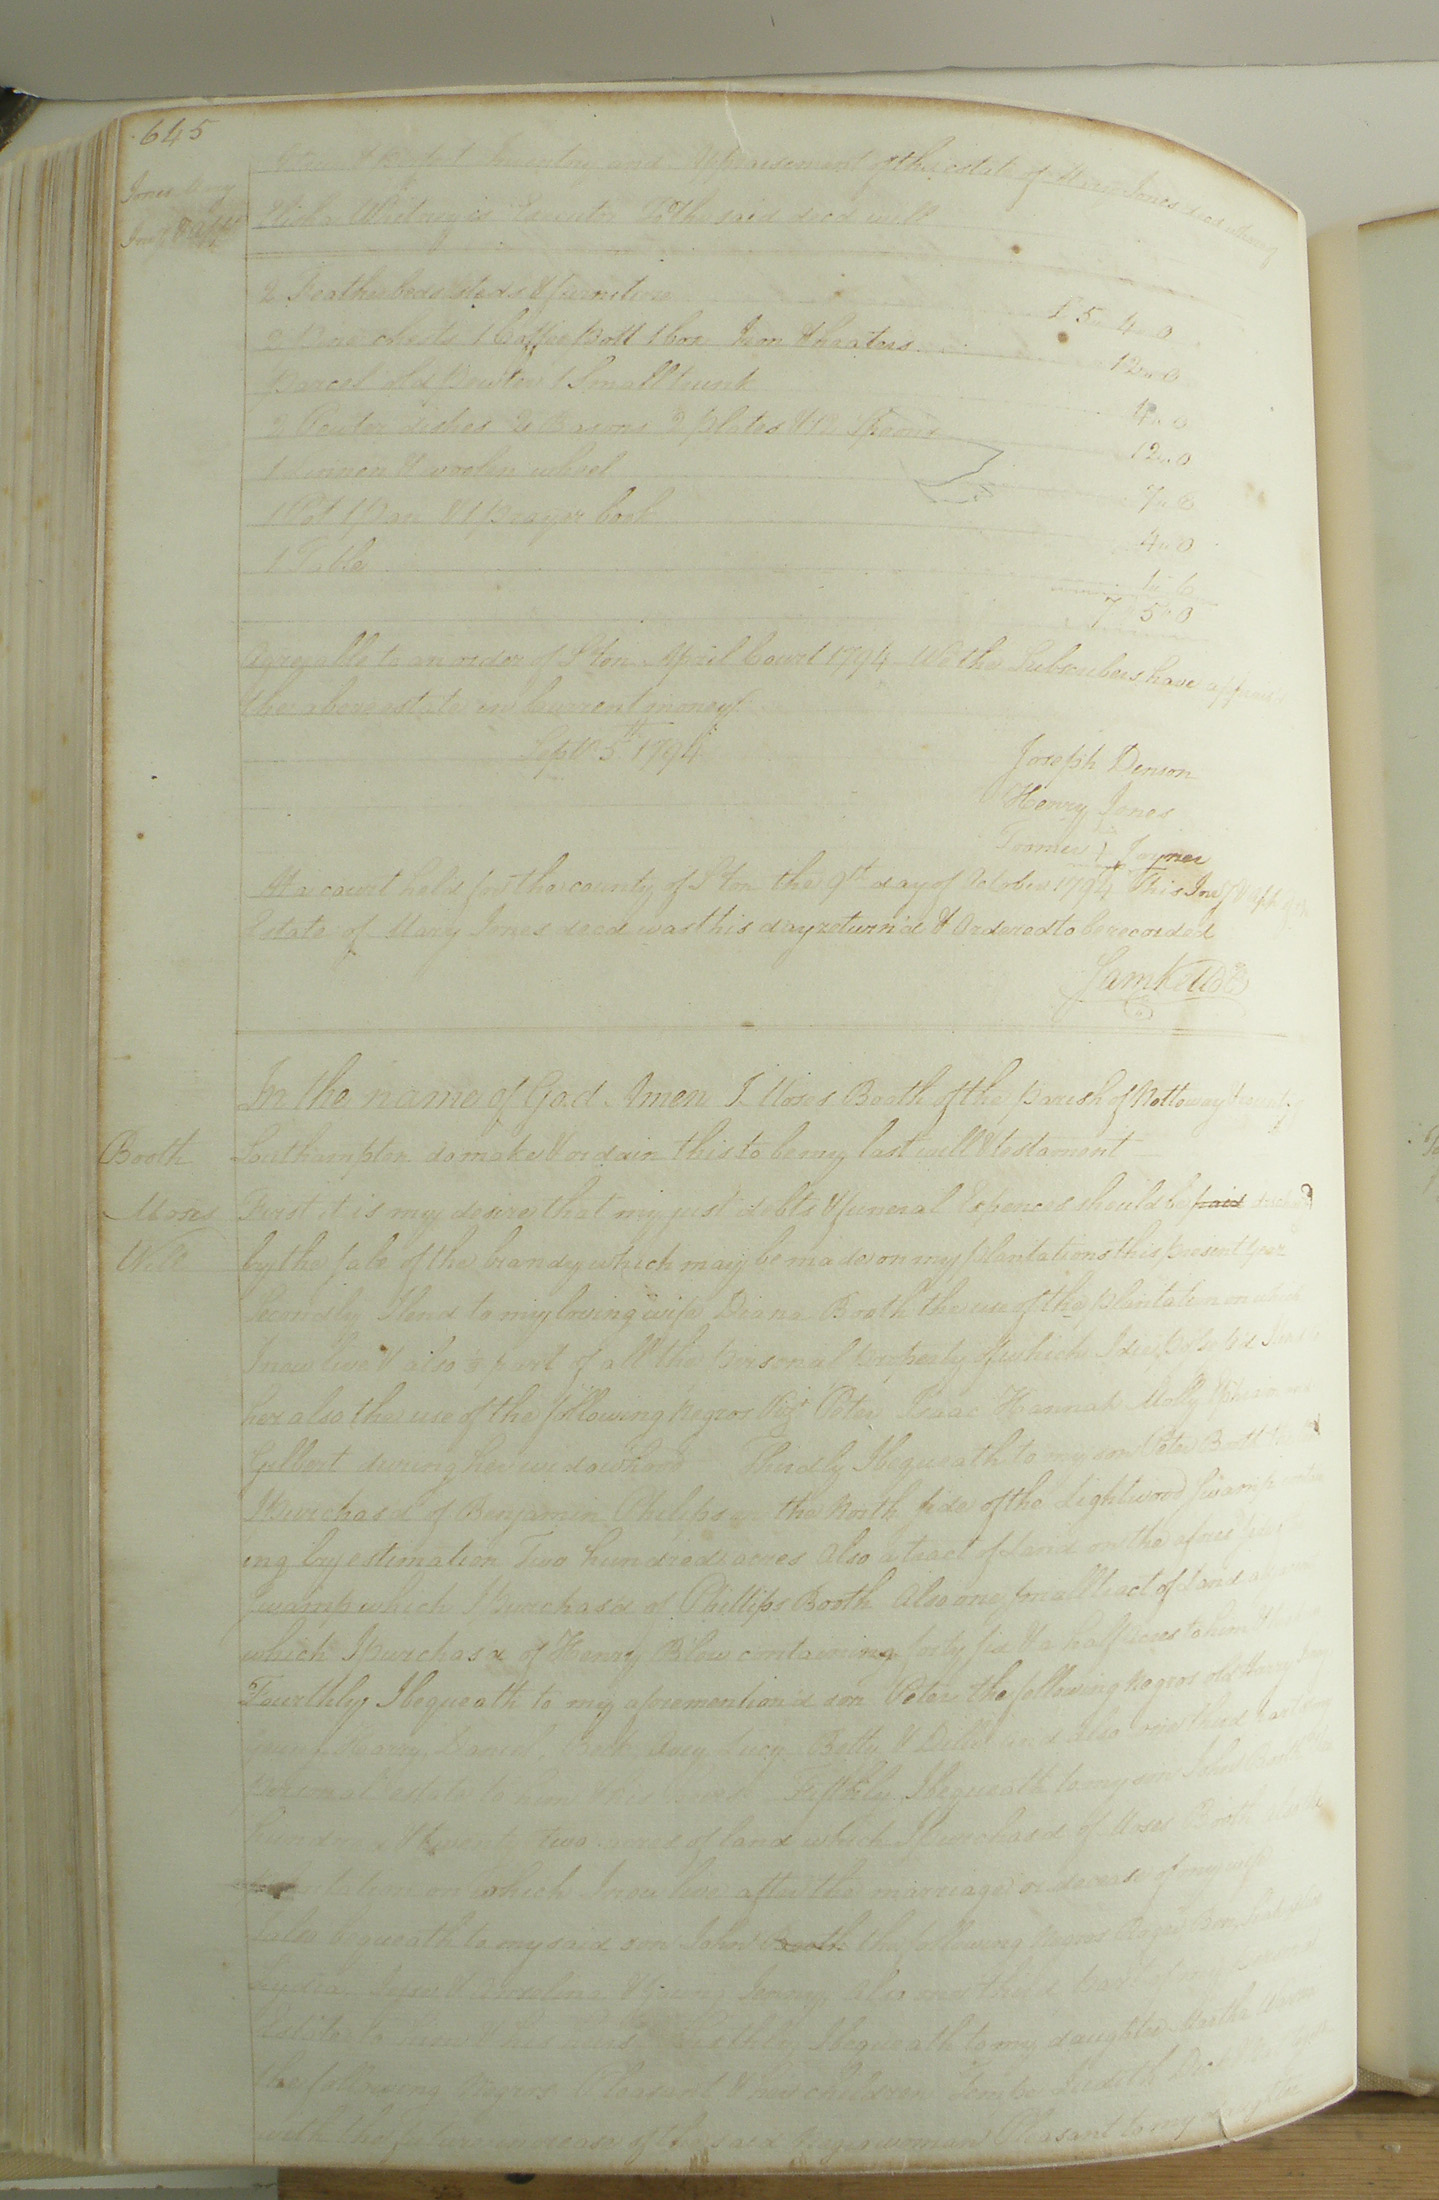 645
A true & perfect Inventory and Appraisement of the estate of Mary Jones decd whereof
Jones Mary
Elisha Whitney is Executor To the said decd will
Inv & App
2 Feather beds steds & furniture £ 5 „ 4 „ 0
2 Pine chests 1 Coffee Pott 1 box Iron & heaters 12 „ 0
Parcel old Pewter 1 Small trunk 4 „ 0
2 Peuter dishes 2 Basons 2 plates & 12 Spoons 12 „ 0
1 Linnen & woolen wheel 7 „ 6
1 Pot 1 Pan & 1 Prayer book 4 „ 0
1 Table 1 „ 6
7 5 „ 0
Agreeable to an order of S'ton April Court 1794 We the Subscribers have apprais'd
the above estate in Current money
Sept 5th 1794
Joseph Denson
Henry Jones
Joyner
At a court held for the county of S'ton the 9th day of October 1794 This Inv & apt of the
Estate of Mary Jones decd was this day return'd & Ordered to be recorded
Sam Kello
In the name of God Amen I Moses Booth of the parish of Nottoway & county
Booth
Southampton do make & ordain this to be my last will & testament
Moses
First it is my desire that my just debts & funeral Expences should be paid
Will
by the sale of the brandy which may be made on my plantations this present year
Secondly I lend to my loving wife Diana Booth the use of the plantation on which
I now live & also part of all the personal property of which I die I lend to
her also the use of the following Negros Vizt Peter Isaac Hannah Molly
Gilbert during her widowhood Thirdly I bequeath to my son Peter Booth
I Purchasd of Benjamin Philips on the North side of the Lightwood Swamp
ing by estimation Two hundred acres Also a tract of Land on the
Swamp which I Purchasd of Phillips Booth Also one small tract of Land
which I Purchasd of Henry Blow containing forty six & a half acres to him &
Fourthly I bequeath to my aforemention'd son Peter the following Negros old Harry
young Harry Daniel Bob Lucy Betty & also one third part of my
personal estate to him & his heirs Fifthly I bequeath to my son John Booth
hundred & twenty two acres of land which I Purchasd of Moses Booth also the
plantation on which I now live after the marriage or decease of my wife
I also bequeath to my said son John Booth the following Negros Roger Ben
Lydia & young Jenny Also one third part of my personal
Estate to him & his heirs Sixthly I bequeath to my daughter Martha
the following Negros Pleasant & her children Judith
with the future increase of the said Negro woman Pleasant to my daughter